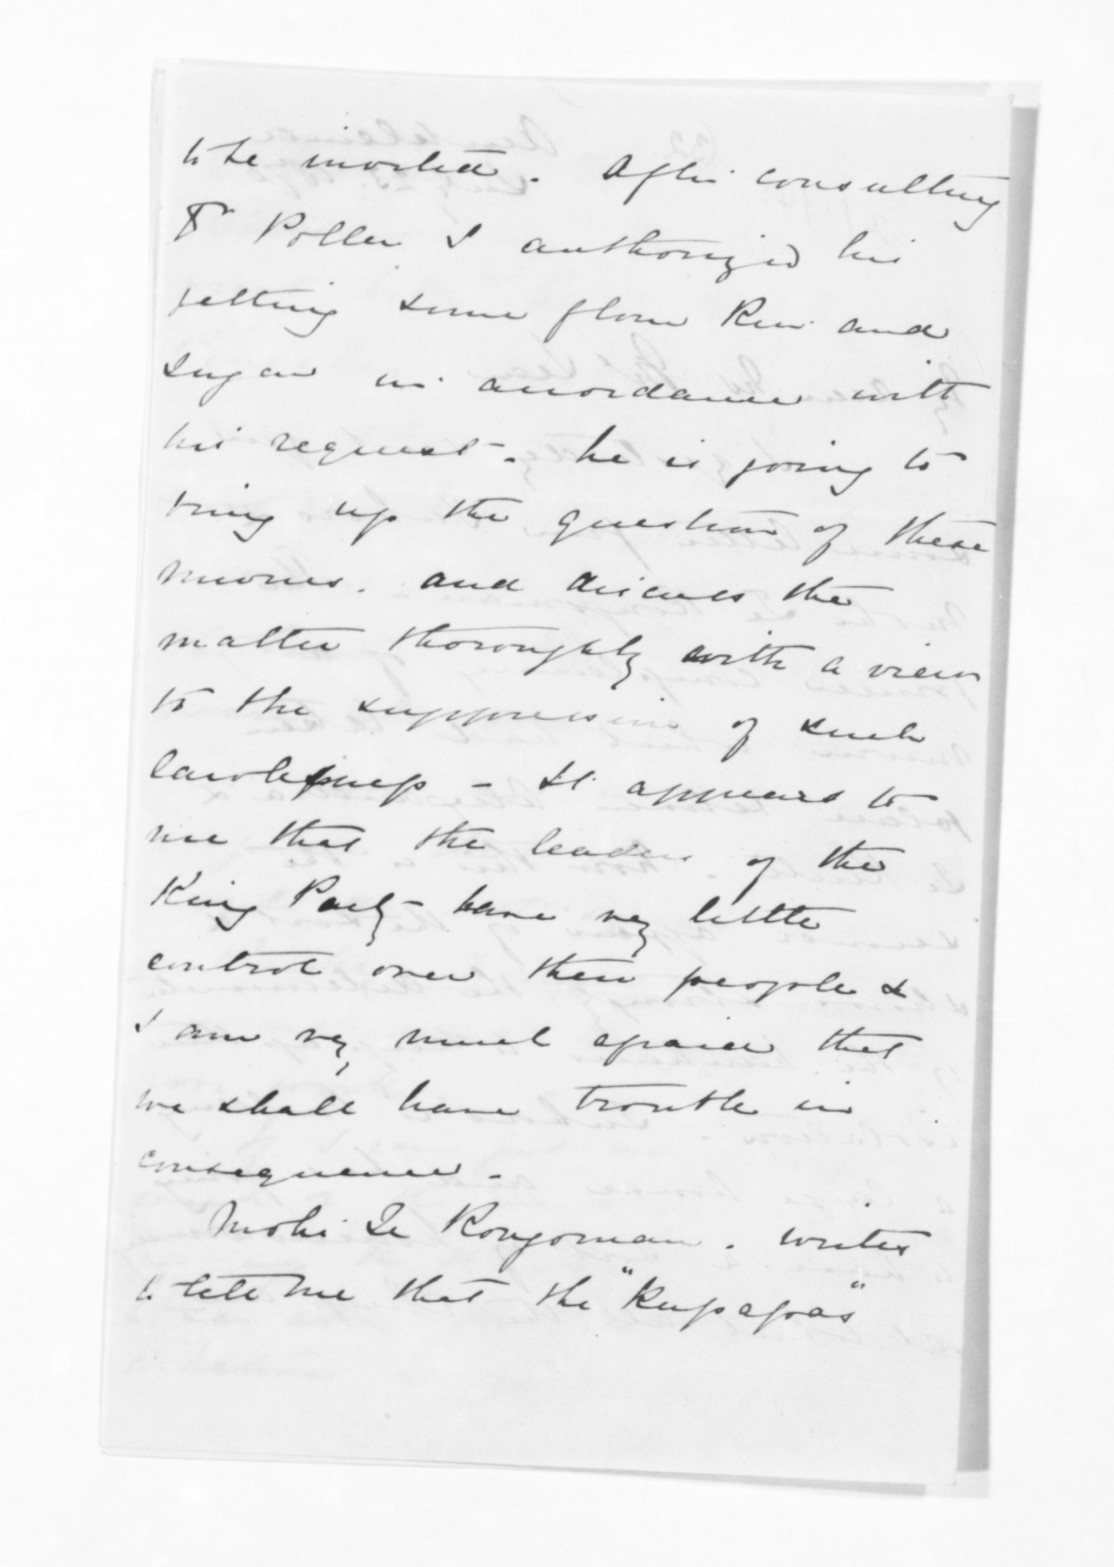 to be invited. After consulting
Dr Pollen I authorized his
getting some flour Rice and
sugar in accordance with
his request. he is going to
bring up the question of these
murders. and discuss the
matter thoroughly with a view
to the suppression of such
lawlessness - It appears to
me that the leaders of the
King Party have very little
control over their people &
I am very much afraid that
we shall have trouble in
consequence.
Mohi Te Rongomau. writes
to tell me that the "Kupapas"